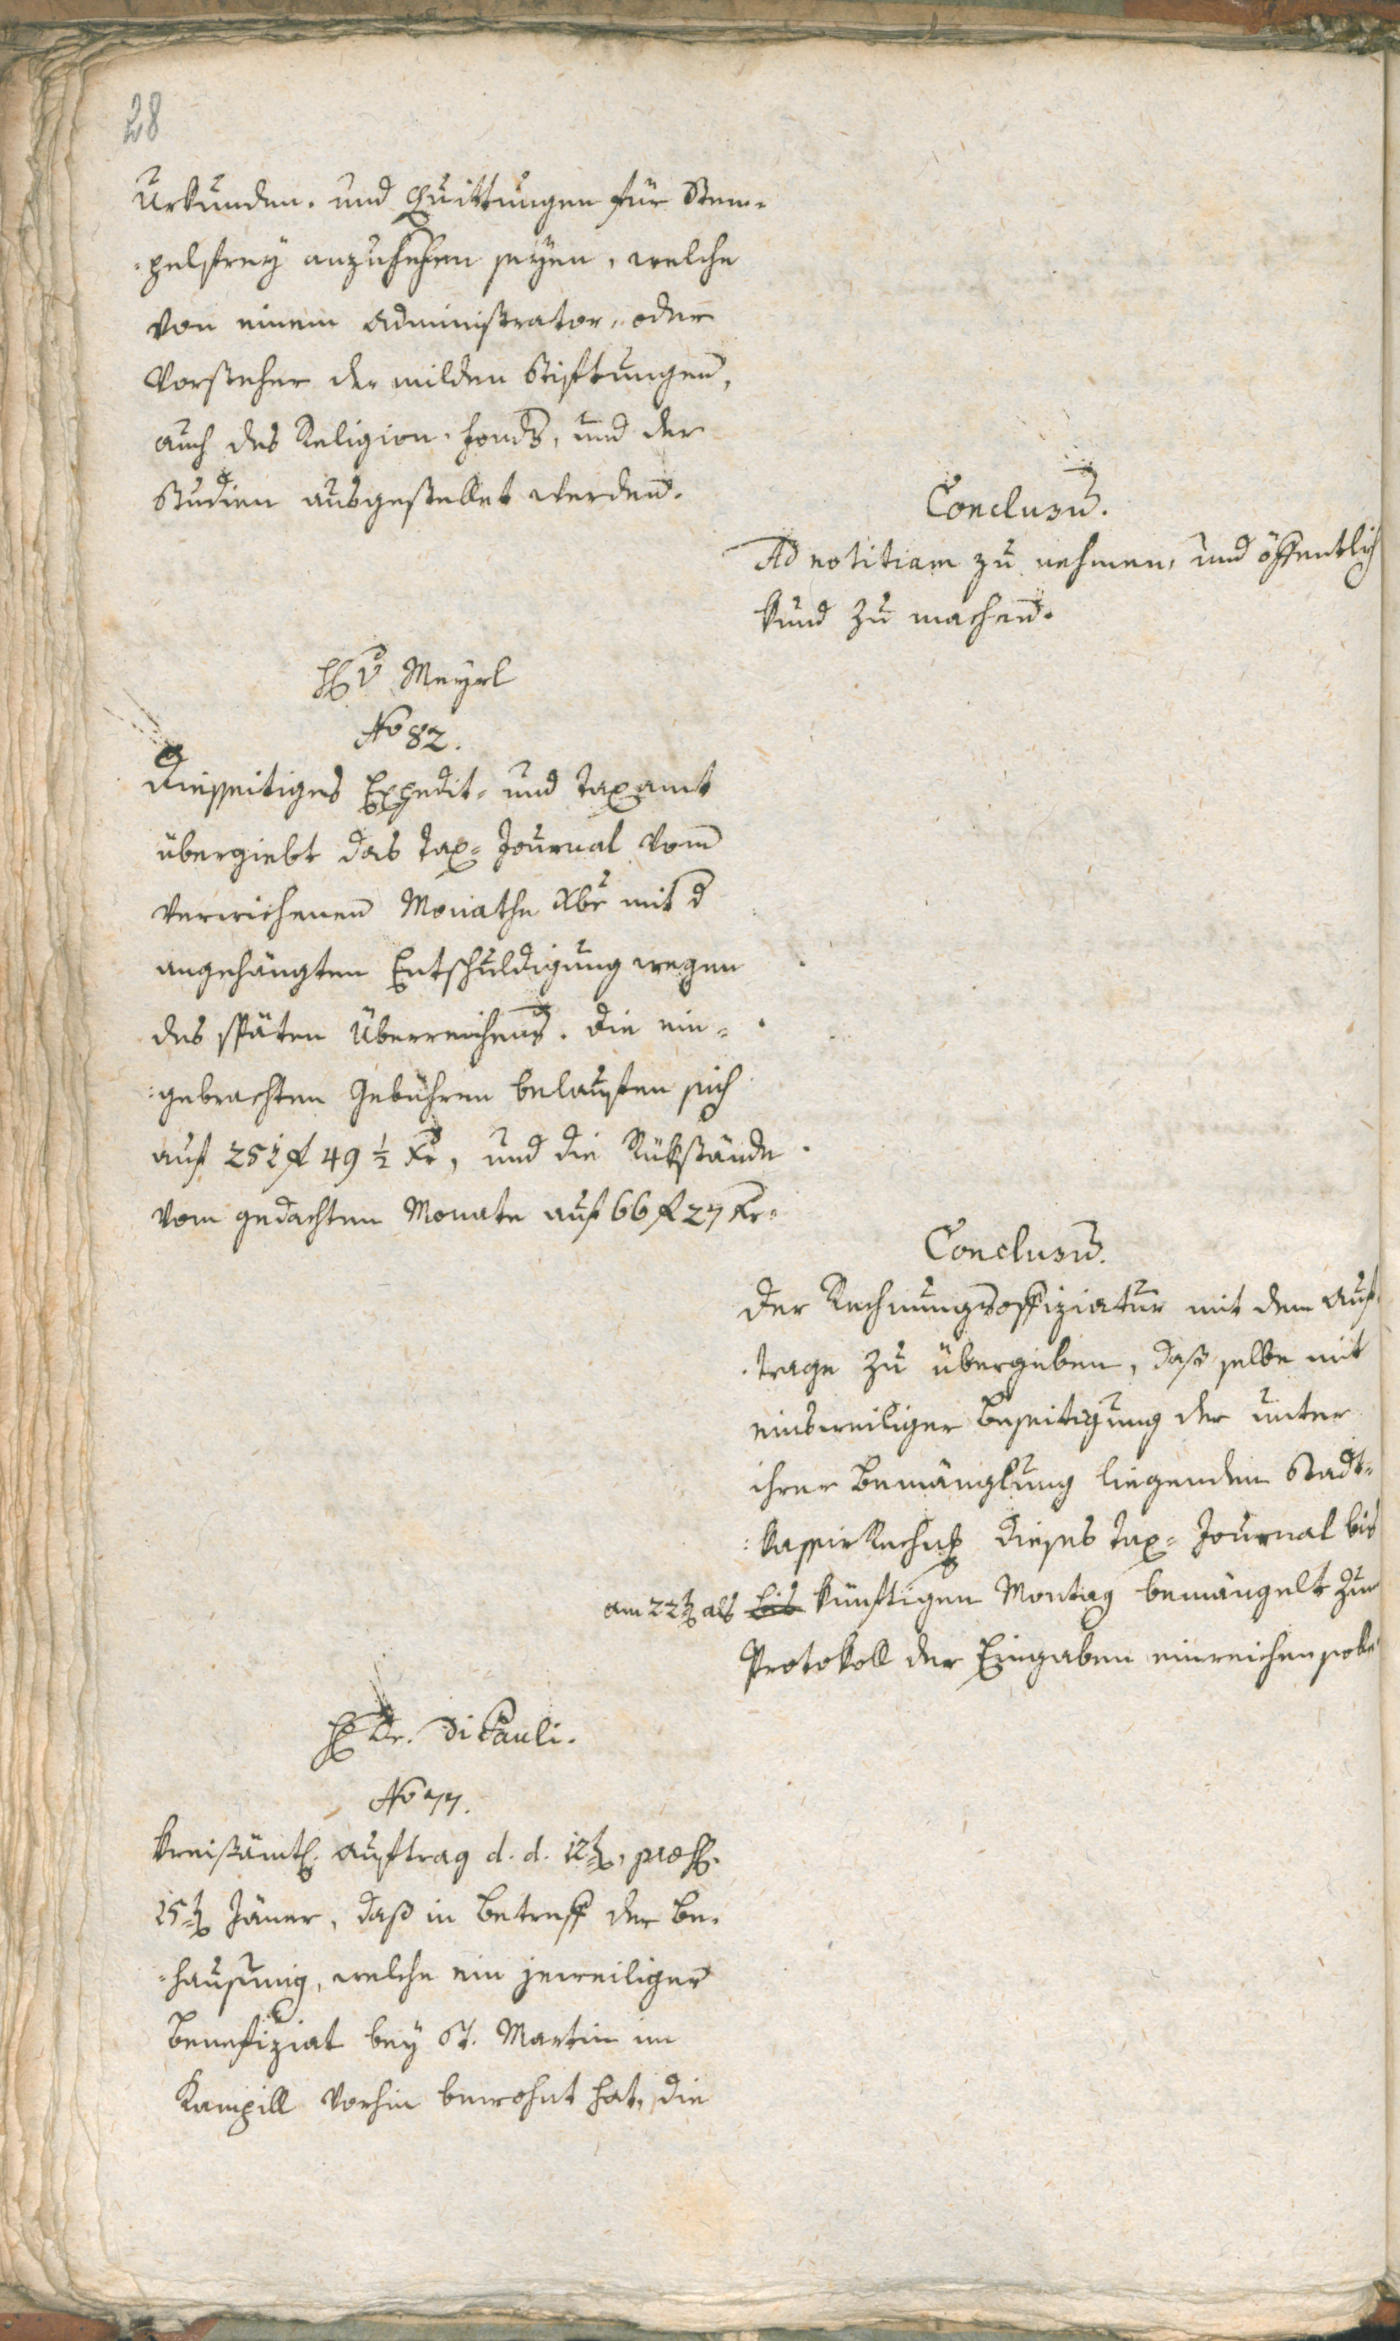 28
Urkunden- und Quittungen für Stem-
-pelfrey anzusehen seyen, welche
von einem Administrator, oder
Vorsteher der milden Stiftungen,
auch des Religion-Fonds, und der
Studien ausgestellet werden.
Conclusum.
Ad notitiam zu nehmen, und öffentlich
kund zu machen.
H v Meyrl
No 82.
Diesseitiges Expedit- und Taxamt
übergiebt das Tax-Journal vom
verwichenen Monathe Xbr mit d
angehängten Entschuldigung wegen
des späten Überreichens. Die ein-
-gebrachten Gebühren belauffen sich
auf 252 f 49 1/2 Kr, und die Rükstände
vom gedachten Monate auf 66 f 27 Kr.
Conclusum.
Der Rechnungsoffiziatur mit dem Auf-
-trage zu übergeben, daß selbe mit
einsweiliger Beseitigung der unter
ihrer Bemänglung liegenden Stadt-
-kassir Rechng dieses Tax-Journal bis
am 22ten als bis künftigen Montag bemängelt zum
Protokoll der Eingaben einreichen solle
H Dr. Di Pauli.
No 77.
Kreißämtl. Auftrag d. d. 12ten, præs.
15ten Jäner, daß in Betreff der Be-
-hausung, welche ein jeweiliger
Benefiziat bey St. Martin im
Kampill vorhin bewohnt hat, die